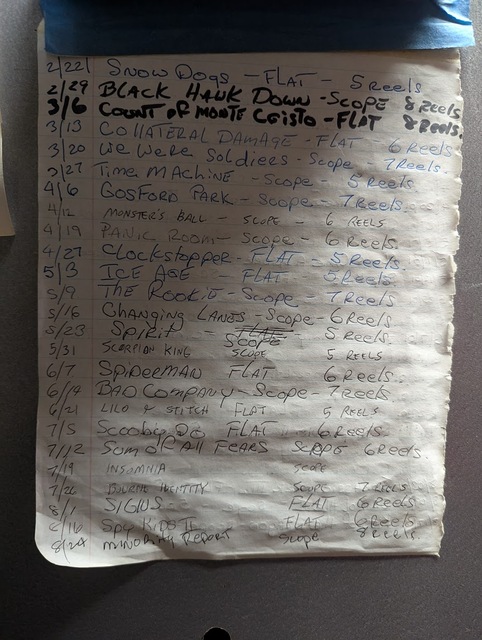 2/22 Snow Dogs - FLAT - 5 Reels
2/29 BLACK HAWK DOWN - SCOPE 8 Reels
3/6 COUNT OF MONTE CRISTO - FLAT 8 Reels.
3/13 COLLATERAL DAMAGE - FLAT 6 Reels
3/20 We Were Soldiers - Scope - 7 Reels
3/27 Time MACHiNe - Scope - 5 Reels.
4/6 GOSFORD PARK - Scope - 7 Reels.
4/12 MONSTER'S BALL - SCOPE - 6 REELS
4/19 PANIC ROOM - Scope - 6 Reels.
4/27 Clockstopper - FLAT - 5 Reels.
5/3 ICE AGE - FLAT 5 Reels.
5/9 The Rookie - Scope - 7 Reels
5/16 Changing Lanes - Scope - 6 Reels.
5/23 Spirit - FLAT - 5 Reels.
Scope
5/31 SCORPION KING SCOPE 5 REELS
6/7 SpiDerMAN FLAT 6 Reels
6/14 BAD Company - Scope - 7 Reels
6/21 LILO & STITCH FLAT 5 REELS
7/5 Scooby Do FLAT 6 Reels.
7/12 Sum of All Fears Scope 6 Reels.
7/19 INSOMNIA SCOPE
7/26 BOURNE IDENTITY SCOPE 7 REELS
8/1 SIGNS - FLAT 6 Reels
8/16 Spy KIDS II FLAT 6 Reels
8/24 MINORITY REPORT Scope 8 Reels